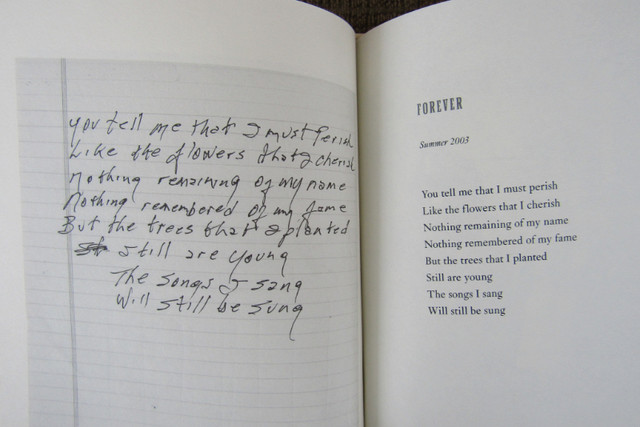 You tell me that I must perish
Like the flowers that I cherish
Nothing remaining of my name
Nothing remembered of my fame
But the trees that I planted
still are young
The songs I sang
Will still be sung
FOREVER
Summer 2003
You tell me that I must perish
Like the flowers that I cherish
Nothing remaining of my name
Nothing remembered of my fame
But the trees that I planted
Still are young
The songs I sang
Will still be sung